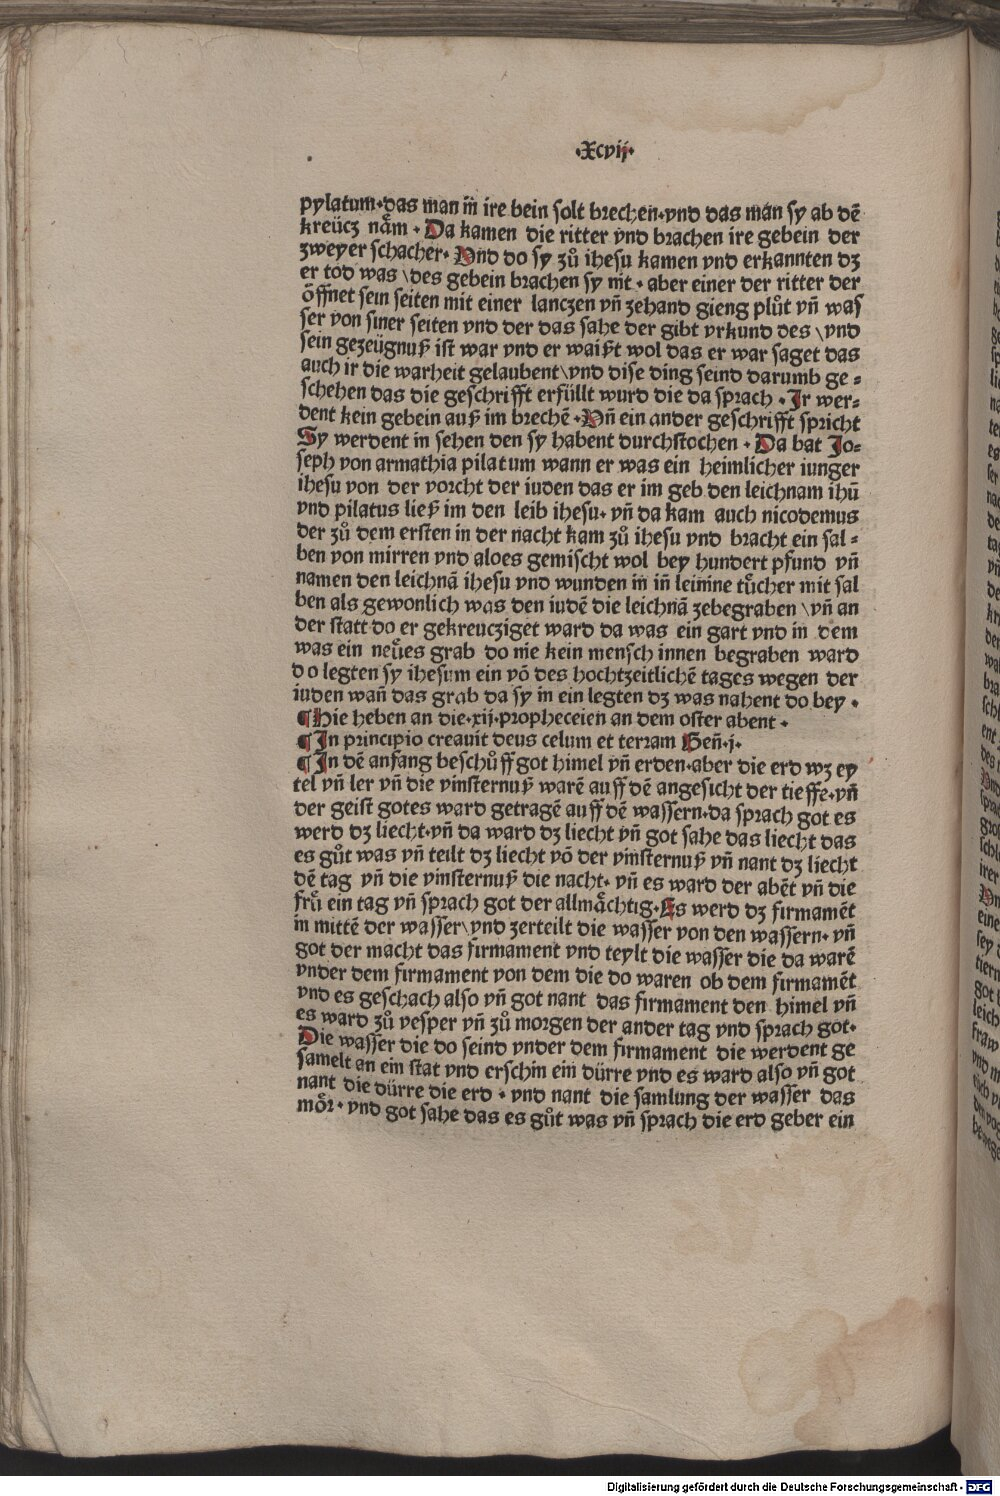 ·Xcvij·
pylatum·das man in̄ ire bein solt brechen·vnd das man sy ab dē
kreücz näm · Da kamen die ritter vnd brachen ire gebein der
zweyer schacher· Vnd do sy zů ihesu kamen vnd erkannten dz
er tod was \ des gebein brachen sy nit · aber einer der ritter der
öffnet sein seiten mit einer lanczen vñ zehand gieng plůt vñ was
ser von siner seiten vnd der das sahe der gibt vrkund des \ vnd
sein gezeügnuß ist war vnd er waißt wol das er war saget das
auch ir die warheit gelaubent \ vnd dise ding seind darumb ge⸗
schehen das die geschrifft erfüllt wurd die da sprach · Ir wer⸗
dent kein gebein auß im brechē · Vñ ein ander geschrifft spricht
Sy werdent in sehen den sy habent durchstochen · Da bat Jo⸗
seph von armathia pilatum wann er was ein heimlicher iunger
ihesu von der vorcht der iuden das er im geb den leichnam ihū
vnd pilatus ließ im den leib ihesu· vñ da kam auch nicodemus
der zů dem ersten in der nacht kam zů ihesu vnd bracht ein sal⸗
ben von mirren vnd aloes gemischt wol bey hundert pfund vñ
namen den leichnā ihesu vnd wunden in̄ in̄ leinine tücher mit sal
ben als gewonlich was den iudē die leichnā zebegraben \ vñ an
der statt do er gekreucziget ward da was ein gart vnd in dem
was ein neües grab do nie kein mensch innen begraben ward
do legten sy ihesum ein vō des hochtzeitlichē tages wegen der
iuden wañ das grab da sy in ein legten dz was nahent do bey ·
¶ Hie heben an die·xij·propheceien an dem oster abent ·
¶ In principio creauit deus celum et terram Geñ·j·
¶ In dē anfang beschůff got himel vñ erden·aber die erd wz ey
tel vñ ler vñ die vinsternuß warē auff dē angesicht der tieffe·vñ
der geist gotes ward getragē auff dē wassern·da sprach got es
werd dz liecht·vñ da ward dz liecht vñ got sahe das liecht das
es gůt was vñ teilt dz liecht vō der vinsternuß vñ nant dz liecht
dē tag vñ die vinsternuß die nacht· vñ es ward der abēt vñ die
frů ein tag vñ sprach got der allmächtig·Es werd dz firmamēt
in mittē der wasser \ vnd zerteilt die wasser von den wassern· vñ
got der macht das firmament vnd teylt die wasser die da warē
vnder dem firmament von dem die do waren ob dem firmamēt
vnd es geschach also vñ got nant das firmament den himel vñ
es ward zů vesper vñ zů morgen der ander tag vnd sprach got·
Die wasser die do seind vnder dem firmament die werdent ge
samelt an ein stat vnd erschin ein dürre vnd es ward also vñ got
nant die dürre die erd · vnd nant die samlung der wasser das
mör · vnd got sahe das es gůt was vñ sprach die erd geber ein
Digitalisierung gefördert durch die Deutsche Forschungsgemeinschaft - DFG